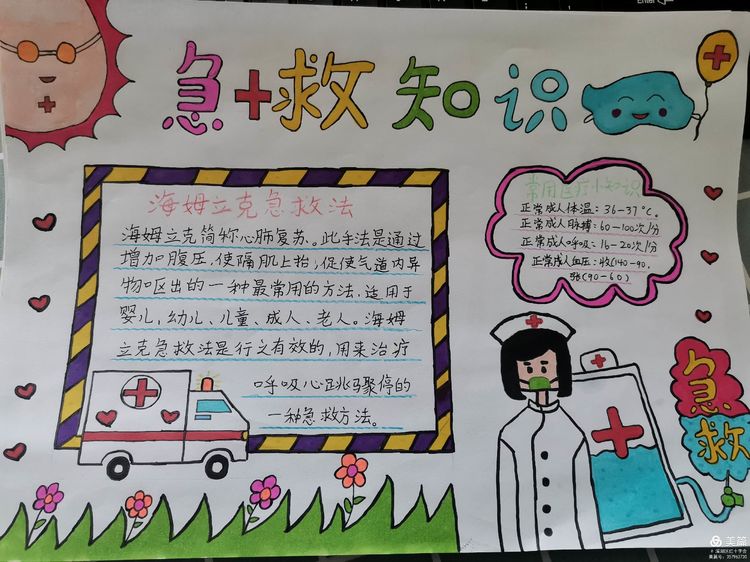 急救知识
海姆立克急救法
海姆立克简称心肺复苏。此手法是通过
增加腹压,使隔肌上抬,促使气道内异
物呕出的一种最常用的方法.适用于
婴儿,幼儿、儿童、成人、老人。海姆
立克急救法是行之有效的,用来治疗
呼吸心跳骤停的
一种急救方法。
常用医疗小知识
正常成人体温:36-37℃。
正常成人脉搏:60-100次/分
正常成人呼吸:16-20次/分
正常成人血压:收(140-90.
张(90-60)
急救
美篇